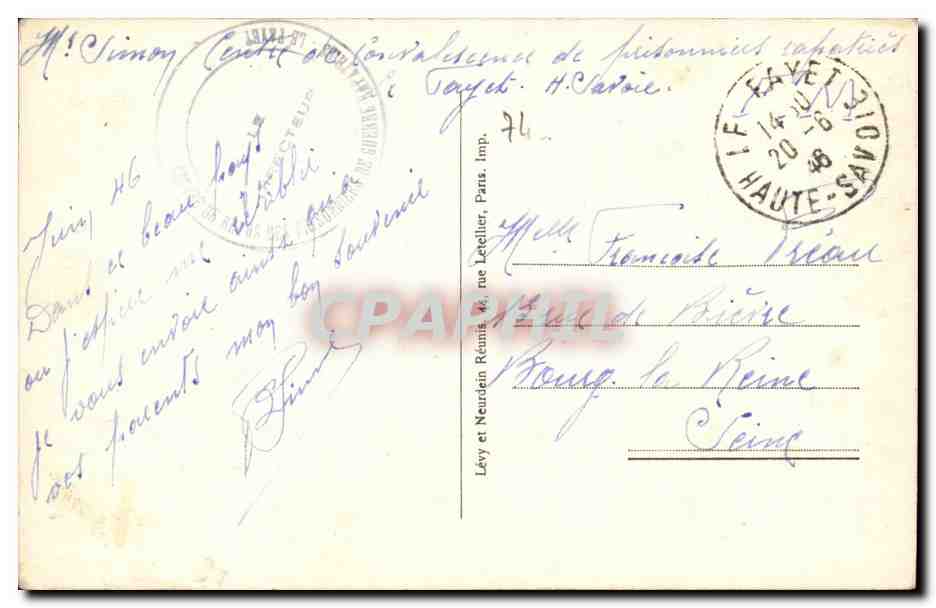 Mr Simon Centre de Convalescence de prisonniers rapatriés
Le Fayet. H. Savoie.
LE FAYET
PRISONNIERS DE GUERRE RAPATRIÉS
LE
DIRECTEUR
LE FAYET
14 10
20 -6
46
HAUTE-SAVOIE
74
Juin 46
Dans ce beau pays
ou j'espère me rétablir
je vous envoie ainsi qu'a
vos parents mon bon souvenir
Lévy et Neurdein Réunis, 44, rue Letellier, Paris. Imp.
CPAPHIL
Melle Françoise Préau
Rue de Bièvre
Bourg la Reine
Seine